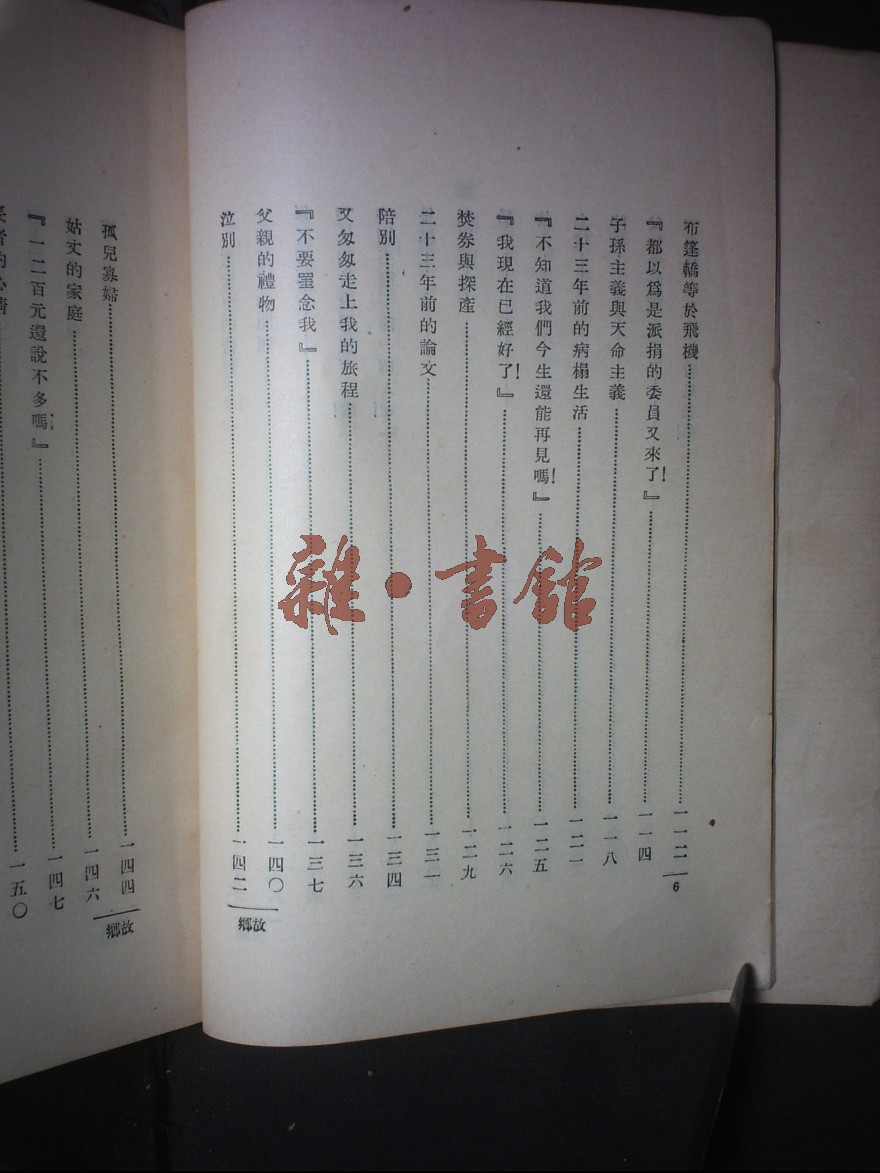 布篷轎等於飛機…………一一二
『都以爲是派捐的委員又來了！』…………一一四
子孫主義與天命主義…………一一八
二十三年前的病榻生活…………一二一
『不知道我們今生還能再見嗎！』…………一二五
『我現在已經好了！』…………一二六
焚券與探產…………一二九
二十三年前的論文…………一三一
陪別…………一三四
又匆匆走上我的旅程…………一三六
『不要罣念我』…………一三七
父親的禮物…………一四〇
泣別…………一四二
6
故鄉
孤兒寡婦…………一四四
姑丈的家庭…………一四六
『一二百元還說不多嗎』…………一四七
者的心情…………一五〇
故鄉
雜·書館